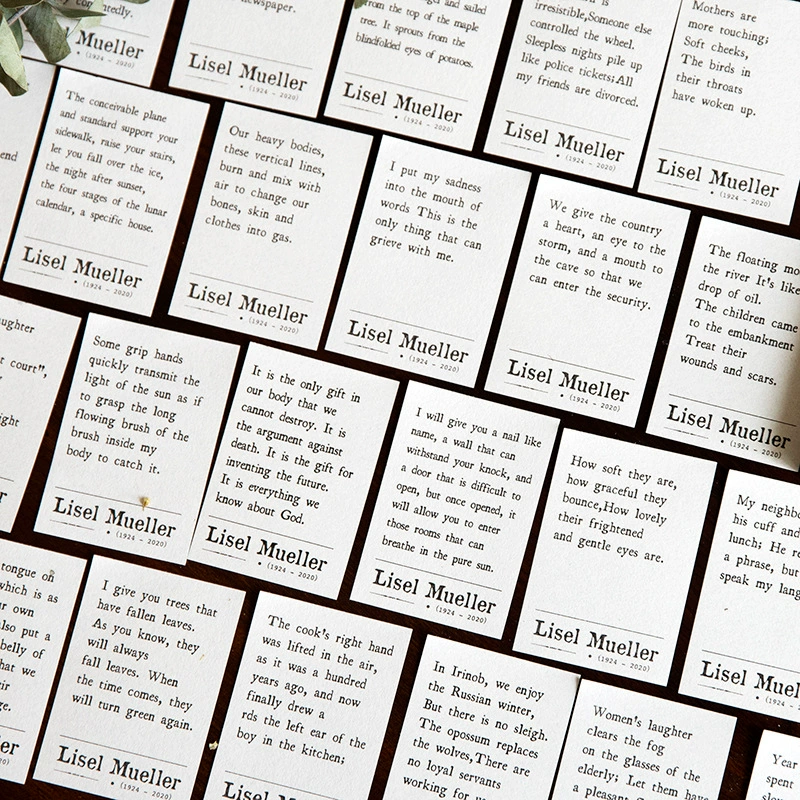 newspaper.
Lisel Mueller
(1924 - 2020)
from the top of the maple
tree. It sprouts from the
blindfolded eyes of potatoes.
Lisel Mueller
(1924 - 2020)
irresistible,Someone else
controlled the wheel.
Sleepless nights pile up
like police tickets;All
my friends are divorced.
Lisel Mueller
(1924 - 2020)
Mothers are
more touching;
Soft cheeks,
The birds in
their throats
have woken up.
Lisel Mueller
(1924 - 2020)
Mueller
(1924 - 2020)
The conceivable plane
and standard support your
sidewalk, raise your stairs,
let you fall over the ice,
the night after sunset,
the four stages of the lunar
calendar, a specific house.
Lisel Mueller
(1924 - 2020)
Our heavy bodies,
these vertical lines,
burn and mix with
air to change our
bones, skin and
clothes into gas.
Lisel Mueller
(1924 - 2020)
I put my sadness
into the mouth of
words This is the
only thing that can
grieve with me.
Lisel Mueller
(1924 - 2020)
We give the country
a heart, an eye to the
storm, and a mouth to
the cave so that we
can enter the security.
Lisel Mueller
(1924 - 2020)
The floating mo
the river It's like
drop of oil.
The children came
to the embankment
Treat their
wounds and scars.
Lisel Mueller
(1924 - 2020)
end
aughter
t court",
ight
Some grip hands
quickly transmit the
light of the sun as if
to grasp the long
flowing brush of the
brush inside my
body to catch it.
Lisel Mueller
(1924 - 2020)
It is the only gift in
our body that we
cannot destroy. It is
the argument against
death. It is the gift for
inventing the future.
It is everything we
know about God.
Lisel Mueller
(1924 - 2020)
I will give you a nail like
name, a wall that can
withstand your knock, and
a door that is difficult to
open, but once opened, it
will allow you to enter
those rooms that can
breathe in the pure sun.
Lisel Mueller
(1924 - 2020)
How soft they are,
how graceful they
bounce,How lovely
their frightened
and gentle eyes are.
Lisel Mueller
(1924 - 2020)
My neighbo
his cuff and
lunch; He re
a phrase, but
speak my lang
Lisel Muel
(1924
tongue on
which is as
ur own
also put a
belly of
hat we
eir
ge.
I give you trees that
have fallen leaves.
As you know, they
will always
fall leaves. When
the time comes, they
will turn green again.
Lisel Mueller
(1924 - 2020)
The cook's right hand
was lifted in the air,
as it was a hundred
years ago, and now
finally drew a
rds the left ear of the
boy in the kitchen;
Lisel Mueller
In Irinob, we enjoy
the Russian winter,
But there is no sleigh.
The opossum replaces
the wolves,There are
no loyal servants
working for u
Women's laughter
clears the fog
on the glasses of the
elderly; Let them have
a pleasant
Year
spent